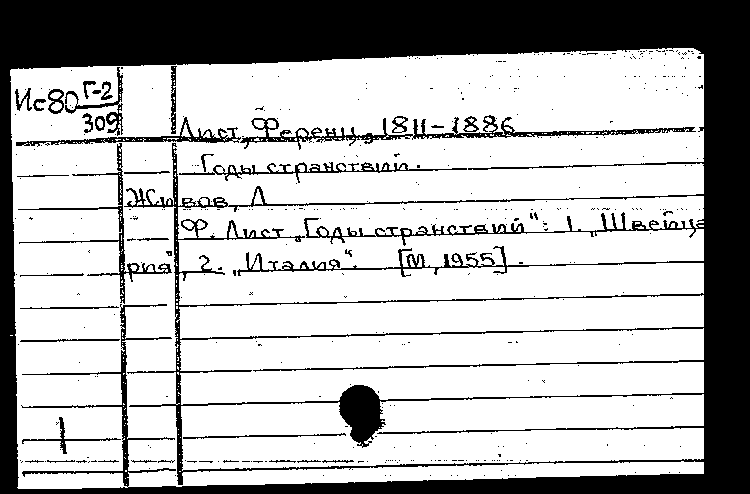 Ис80 Г-2
309
Лист, Ференц, 1811-1886
Годы странствий.
Живов, Л
Ф. Лист „Годы странствий“: 1. „Швейца
рия“, 2. „Италия“. [М., 1955].
1